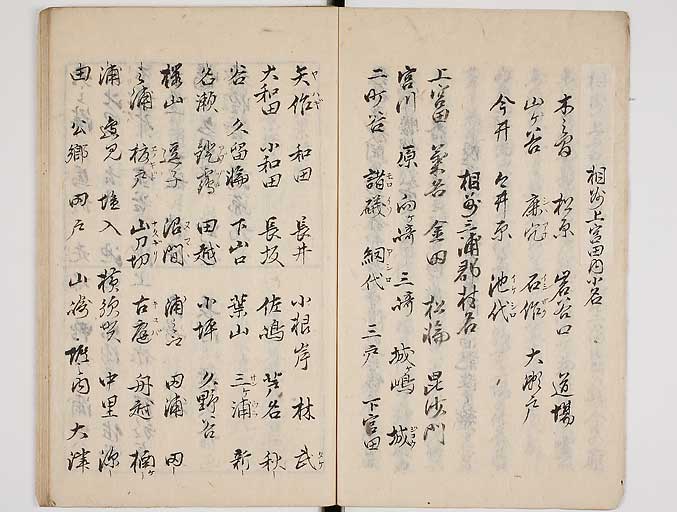 相州上宮田内小名
木之間 松原 岩谷口 道場
山ヶ谷 鹿穴 石作 大瀬戸
今井 今井原 池代
相州三浦郡村名
上宮田 菊名 金田 松輪 毘沙門
宮川 原 向ヶ崎 三崎 城ヶ嶋 城
二町谷 諸磯 網代 三戸 下宮田
矢作 和田 長井 小根岸 林 武
大和田 小和田 長坂 佐嶋 芦名 秋
谷 久留輪 下山口 葉山 三ヶ浦 新
谷 瀬 鐙摺 田越 小坪 久野谷
桜山 逗子 沼間 浦之郷 田浦 田
之浦 山刀切 古庭 舟越 楠
浦 逸見 堀入 横須賀 中里 深
田 公郷 内戸 山崎 堀内 大津